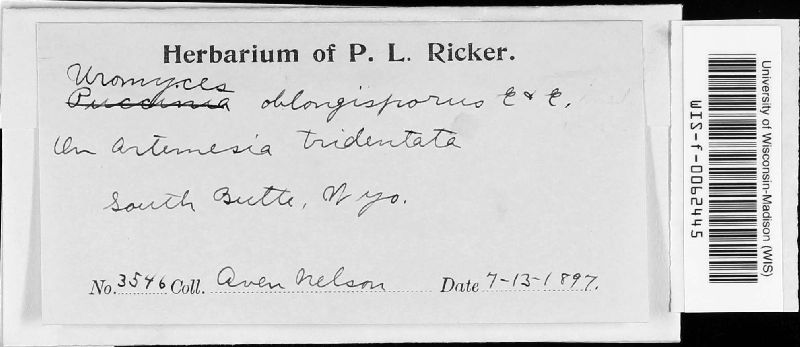 Herbarium of P. L. Ricker.
Uromyces
Puccinia oblongisporus E & E.
On Artemesia tridentata
South Butte, Wyo.
No. 3546 Coll. Aven Nelson Date 7-13-1897.
University of Wisconsin-Madison (WIS)
WIS-f-0062445